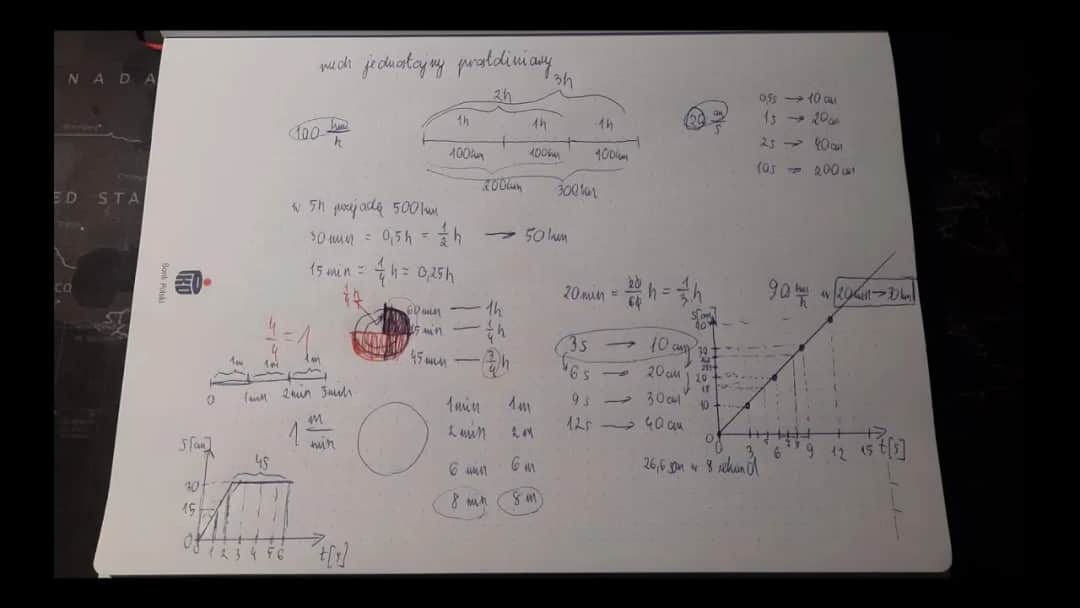 NADA
ED STA
CO
Bank Polski
ruch jednostajny prostoliniowy
3h
2h
1h 1h 1h
100 km/h
100km 100km 100km
200km 300km
20 cm/s
0,5s → 10cm
1s → 20cm
2s → 40cm
10s = 200cm
w 5h przejadę 500km
30min = 0,5h = 1/2 h → 50km
15min = 1/4 h = 0,25h
1/4 h
60min — 1h
15min — 1/4 h
45min — 3/4 h
4/4 = 1
1m 1m 1m
0 1min 2min 3min
1 m/min
1min 1m
2min 2m
6min 6m
8min 8m
S[cm]
4s
30
15
0
0 1 2 3 4 5 6
t[s]
20min = 20/60 h = 1/3 h
90 km/h w 20min → 30km
3s → 10cm
6s → 20cm
9s → 30cm
12s → 40cm
S[cm]
40
30
20
15
10
0
0 3 6 7 8 9 12 15 t[s]
26,6 cm w 8 sekund